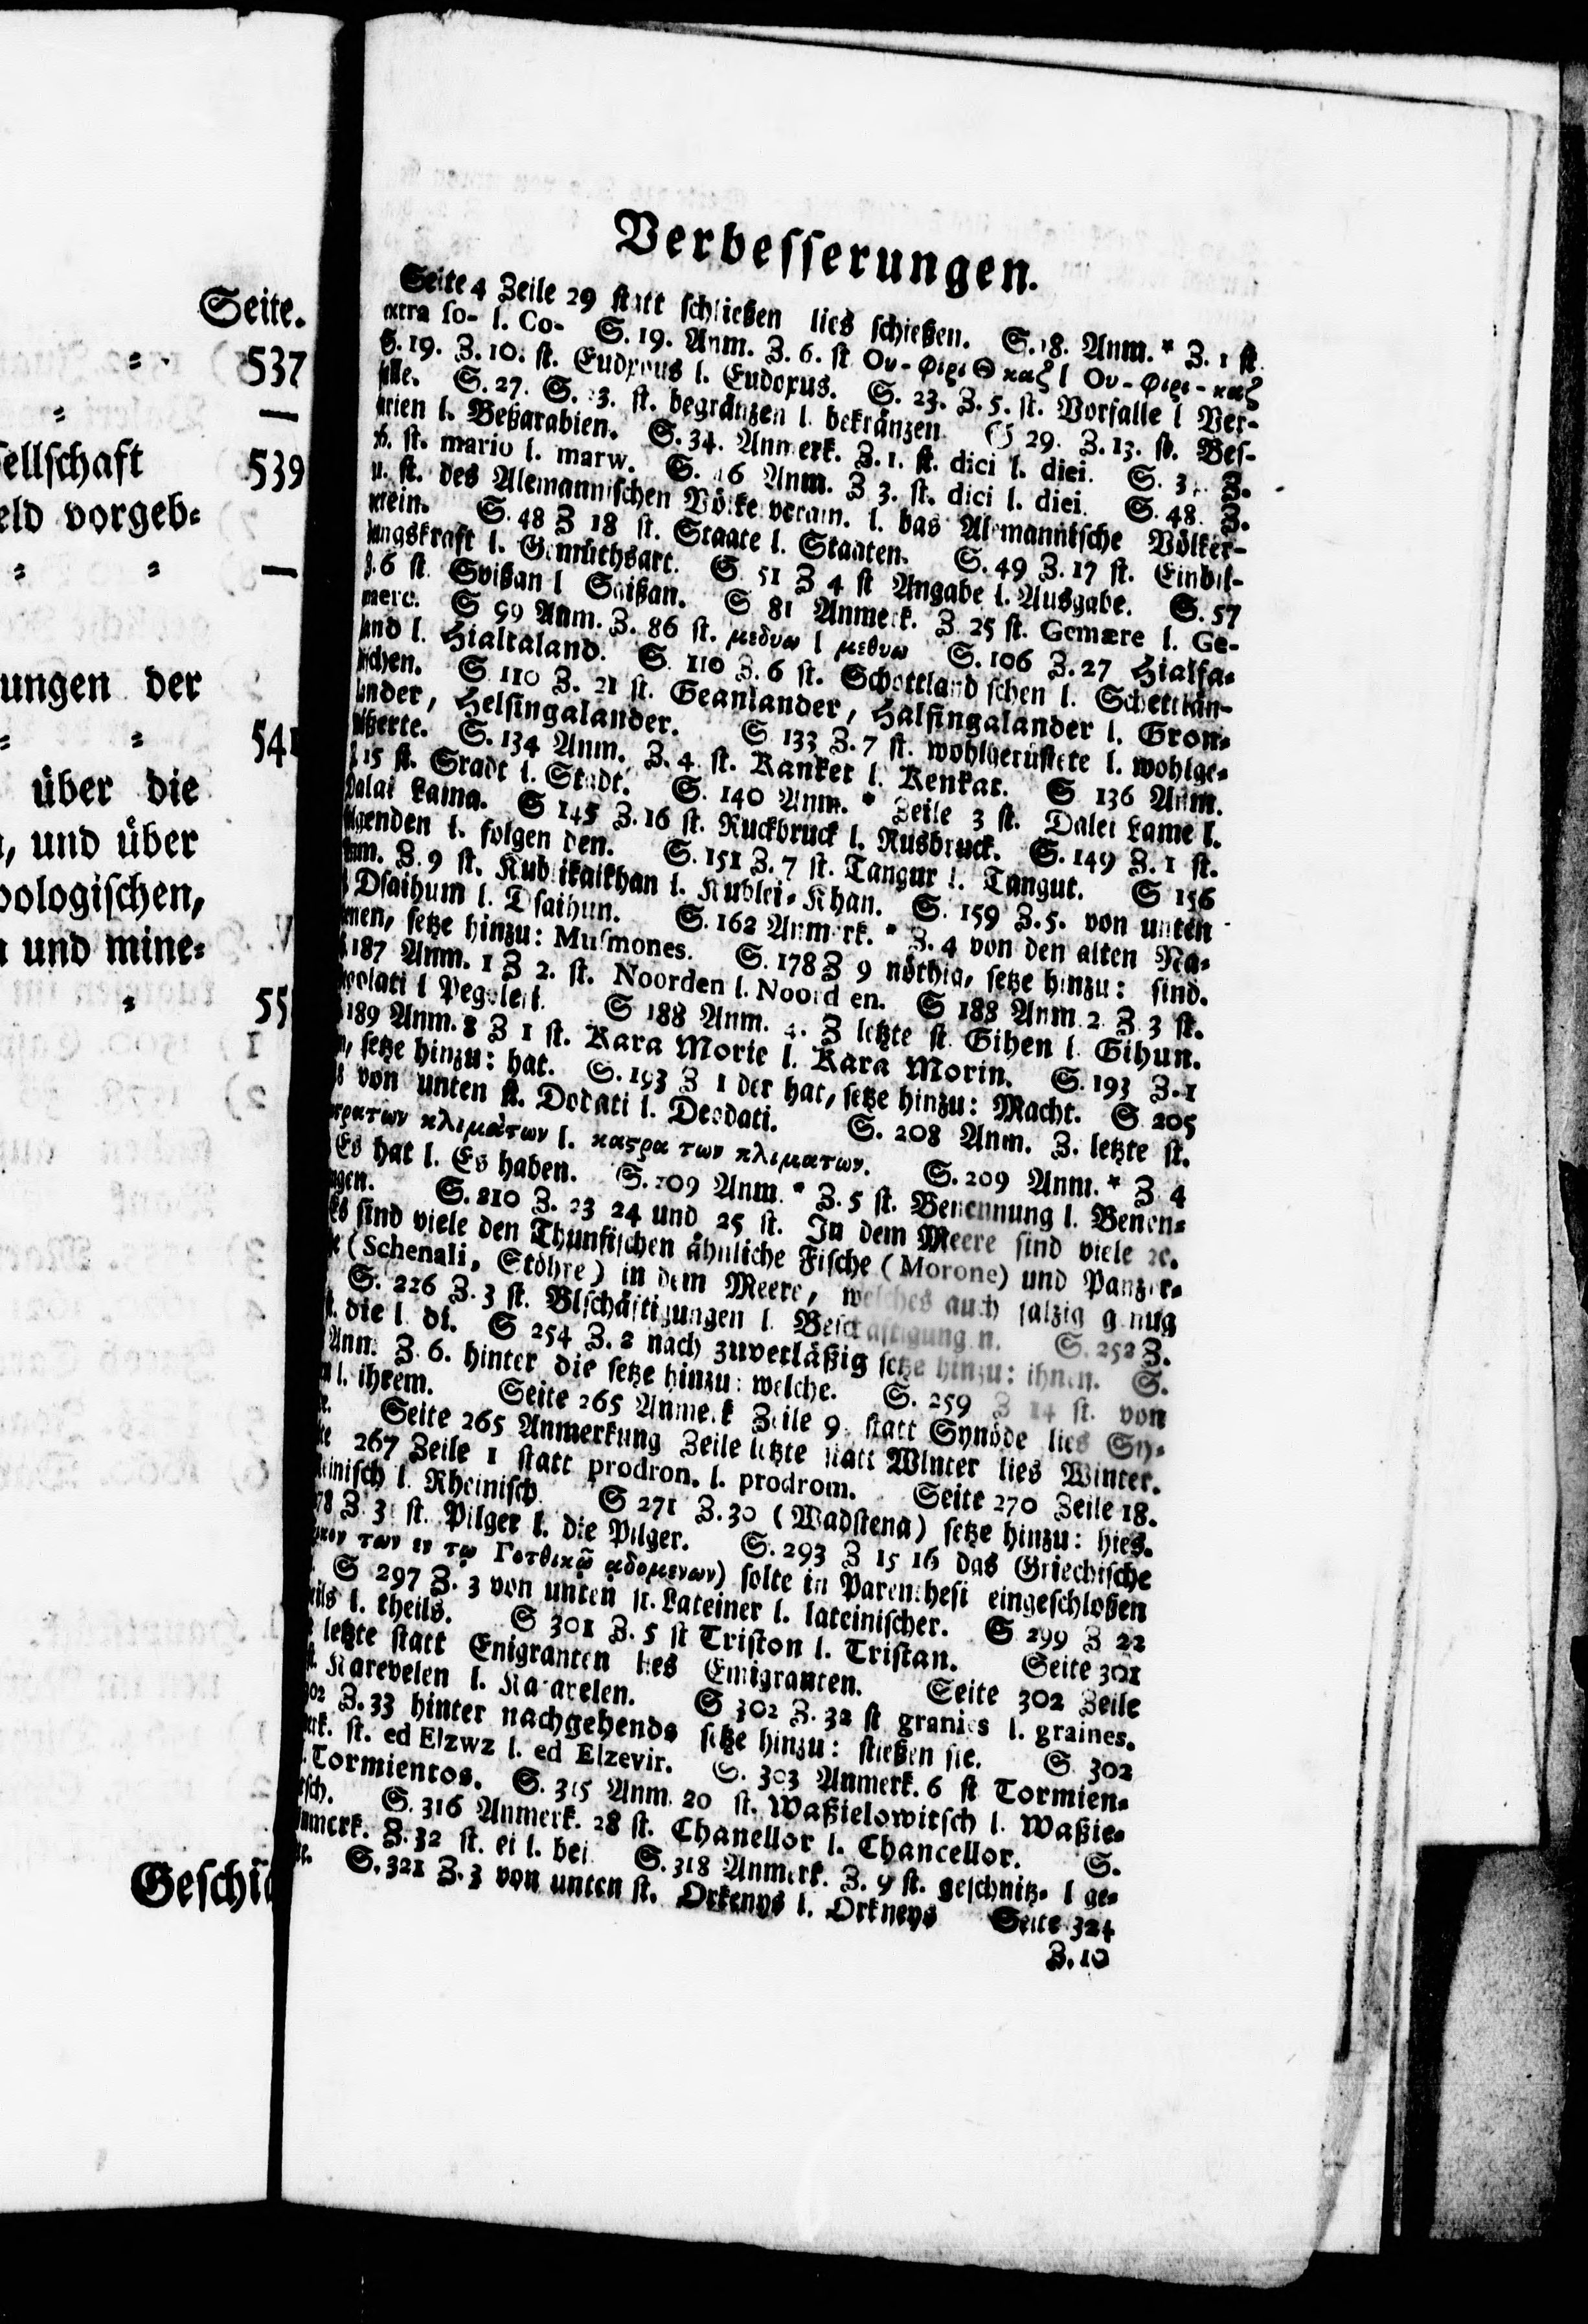 Seite.
537
—
ellschaft 539
eld vorgeb⸗
—
ungen der
über die
und über
oologischen,
und mine⸗
55
Geschi
Verbesserungen.
Seite 4 Zeile 29 statt schließen lies schießen. S. 18. Anm. * Z. 1 st.
extra so- l. Co- S. 19. Anm. Z. 6. st.
S. 19. Z. 10. st. l. Eudoxus. S. 23. Z. 5. st. Vorfalle l Ver-
S. 27. st. begränzen l. bekränzen 29. Z. 13. st. Bes-
arien l. Beßarabien. S. 34. Anmerk. Z. 1. st. dici l. diei. S. Z.
st. mario l. marw. S. Anm. Z 3. st. dici l. diei. S. 48. Z.
st. des Alemannischen l. das Alemannische Völker-
S. 48 Z 18 st. Staate l. Staaten. S. 49 Z. 17 st. Einbil-
ungskraft l. Gemüthsart. S 51 Z 4 st Angabe l. Ausgabe. S. 57
6 st. Svißan l Saißan. S 81 Anmerk. Z. 25 st. Gemære l. Ge-
merc. S 99 Anm. Z. 86 st. μεδυω l μεθυω S. 106 Z. 27 Hialfa⸗
land l. Hialtaland. S. 110 Z. 6 st. l.
S 110 Z. 21 st. Geanlander, Halsingalander l. Gron⸗
länder, Helsingalander. S 133 Z. 7 st. wohlgerüstete l. wohlge⸗
S. 134 Anm. Z. 4 st. Kanket l. Kenkat. S 136 Anm.
15 st. Sradt l. Stadt. S. 140 Anm. * Zeile 3 st. Dalei Lame l.
Dalai Lama. S 145 Z. 16 st. Ruckbruck l. Rusbruck. S. 149 Z. 1 st.
folgenden l. folgen den. S. 151 Z. 7 st. Tangur l. Tangut. S 156
Anm. Z. 9 st. l. Kublei⸗Khan. S. 159 Z. 5. von unten
Dsaihum l. Dsaihun. S. 162 Anmerk. * Z. 4 von den alten Na⸗
men, setze hinzu: Musmones. S. 178 Z 9 nöthig, setze hinzu: sind.
187 Anm. 1 Z 2. st. Noorden l. Noord en. S 188 Anm. 2. Z. 3 st.
l S 188 Anm. 4. Z letzte st. Gihen l. Gihun.
189 Anm. 8 Z 1 st. Kara Morie l. Kara Morin. S. 193 Z. 1
setze hinzu: hat. S. 193 Z 1 der hat, setze hinzu: Macht. S 205
8 von unten st. Dodati l. Deodati. S. 208 Anm. Z. letzte st.
κλιμάτων l. των κλιματων. S. 209 Anm. * Z 4
Es hat l. Es haben. S. 209 Anm. * Z. 5 st. Benennung l. Benen⸗
S. 210 Z. 23 24 und 25 st. In dem Meere sind viele ꝛc.
Es sind viele den Thunfischen ähnliche Fische (Morone) und Panzer⸗
(Schenali, Stöhre) in dem Meere, welches auch salzig genug
S. 226 Z. 3 st. Blschäftigungen l. Beschäftigungen. S. 252 Z.
st. die l. di. S 254 Z. 2 nach zuverläßig setze hinzu: ihnen. S.
Anm. Z. 6. hinter die setze hinzu: welche. S. 259 Z 14 st. von
l. ihrem. Seite 265 Anmerk Zeile 9. statt Synöde lies Sy⸗
Seite 265 Anmerkung Zeile letzte statt Wlnter lies Winter.
267 Zeile 1 statt prodron. l. prodrom. Seite 270 Zeile 18.
einisch l. Rheinisch S 271 Z. 30 (Wadstena) setze hinzu: hies.
78 Z 3 st. Pilger l. die Pilger. S. 293 Z 15 16 das Griechische
των εν τῳ Γοτθικῷ αδομενων) solte in Parenthesi eingeschloßen
S 297 Z. 3 von unten st. Lateiner l. lateinischer. S 299 Z 22
eils l. theils. S 301 Z. 5 st Triston l. Tristan. Seite 301
letzte statt Enigranten lies Emigranten. Seite 302 Zeile
Karevelen l. Karavelen. S 302 Z. 32 st granies l. graines.
302 Z. 33 hinter nachgehends setze hinzu: stießen sie. S 302
erk. st. ed Elzwz l. ed Elzevir. S. 303 Anmerk. 6 st Tormien⸗
Tormientos. S. 315 Anm. 20 st. Waßielowitsch l. Waßie⸗
S. 316 Anmerk. 28 st. Chanellor l. Chancellor. S.
nmerk. Z. 32 st. ei l. bei S. 318 Anmerk. Z. 9 st. geschnitz⸗ l ge⸗
S. 321 Z. 3 von unten st. Orkenys l. Orkneys Seite 324
Z. 10